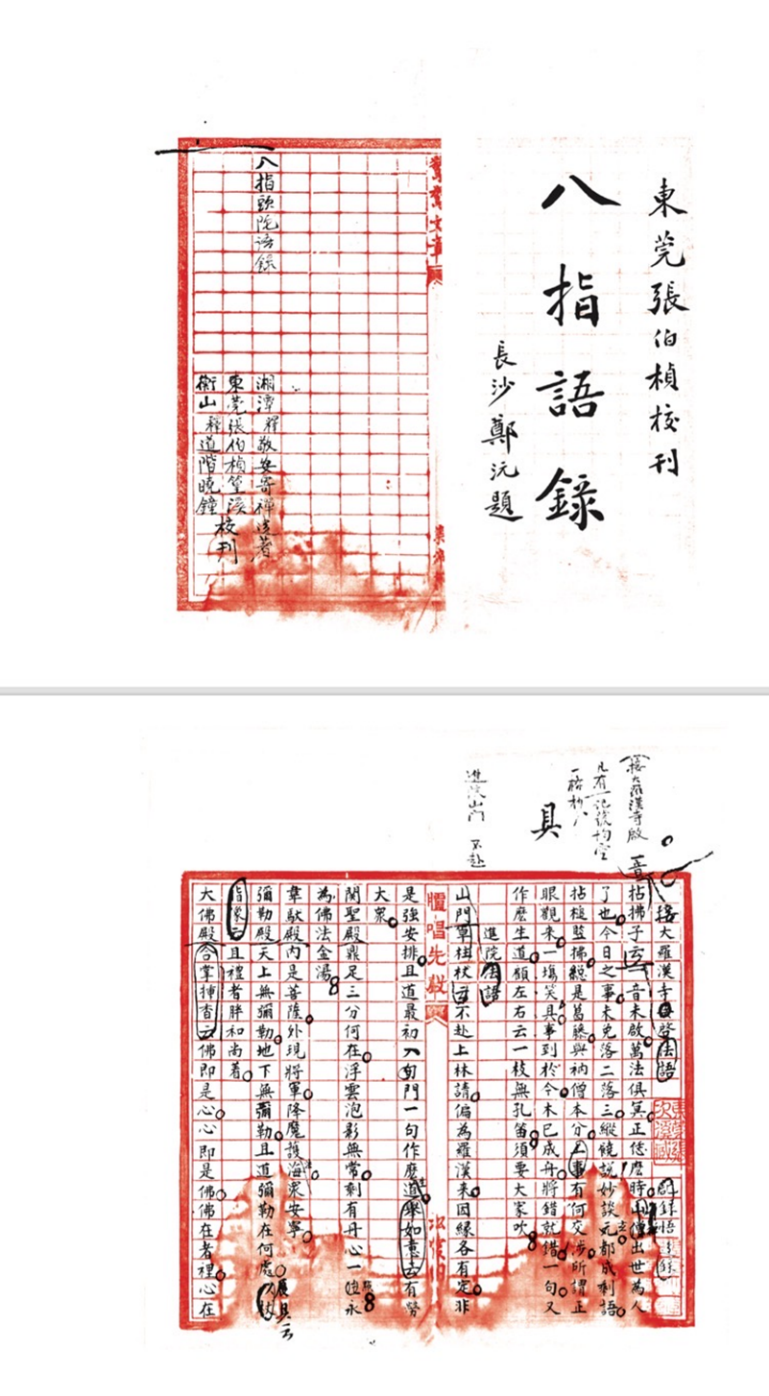 東莞張伯楨校刊
八指語錄
長沙鄭沅題
八指頭陀語錄
湘潭釋敬安寄禪遺著
東莞張伯楨篁溪
衡山釋道階曉鐘
校刊
接大羅漢寺
凡有一記號均空
一格抄
具
進院山門
不赴
接大羅漢寺啓法語
拈拂子云一音未啟萬法俱冥正恁麼時山僧出世為人
了也今日之事未免落二落三縱饒說妙談元都成剩語
拈槌豎拂總是葛藤與衲僧本分上事有何交涉所謂正
眼觀來一場笑具事到於今木已成舟將錯就錯一句又
作麼生道顧左右云一枝無孔笛須要大家吹
進院法語
山門卓拄杖云不赴上林請偏為羅漢來因緣各有定非
膻唱先啟
是強安排且道最初入門一句作麼道舉如意云有勞
大眾
關聖殿鼎足三分何在浮雲泡影無常剩有丹心一
為佛法金湯
韋馱殿內是菩薩外現將軍降魔護法海眾安寧
彌勒殿天上無彌勒地下無彌勒且道彌勒在何處
展具云
指像云且禮者胖和尚著
大佛殿合掌插香云佛即是心心即是佛佛在者裡心在